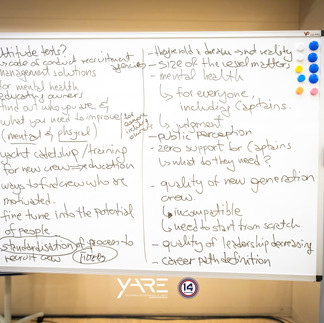 attitude tests?
code of conduct recruitment
agencies
management solutions
for mental health
educating owners
find out who you are &
what you need to improve
(mental & physical)
yacht cadetship / training
for new crew → education
ways to find crew who are
motivated.
fine tune into the potential
of people
standardisation of process to
recruit crew
- they're sold a dream - not reality
- SIZE of the vessel matters
- mental health
↳ for everyone,
including Captains.
↳ judgment
- public perception
- zero support for Captains
↳ what do they need?
- quality of new generation
crew.
↳ incompatible
↳ need to start from scratch
- quality of leadership decreasing
- career path definition
YARE
14